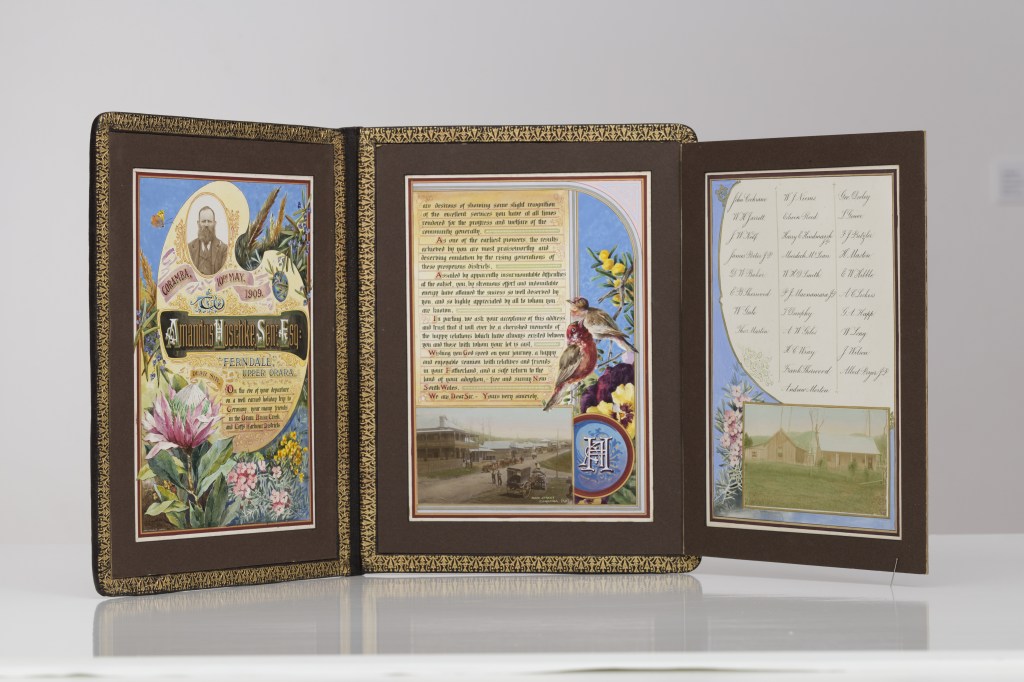 CORAMBA,
10TH MAY,
1909.
To
Amandus Huschke Senr. Esq.
"FERNDALE,"
UPPER ORARA.
DEAR SIR,
On the eve of your departure
on a well earned holiday trip to
Germany, your many friends
in the Orara,
and Coffs Harbour Districts,
are desirous of showing some slight recognition
of the excellent services you have at all times
rendered for the progress and welfare of the
community generally.
As one of the earliest pioneers the results
achieved by you are most praiseworthy and
deserving emulation by the rising generations of
these prosperous districts.
Assailed by apparently insurmountable difficulties
at the outset, you, by strenuous effort and indomitable
energy have attained the success so well deserved by
you, and so highly appreciated by all to whom you
are known.
In parting we ask your acceptance of this address
and trust that it will ever be a cherished memento of
the happy relations which have always existed between
you and those with whom your lot is cast.
Wishing you God speed on your journey, a happy
and enjoyable reunion with relatives and friends
in your Fatherland, and a safe return to the
land of your adoption, free and sunny New
South Wales.
We are Dear Sir - Yours very sincerely,
H
John Cochrane
W. H. Jarrett
James Bates J.P.
E. G. Thorwood
W. Gale
Thos Martin
W. J. Norris
Edwin Hoad
Meredith McLean
W. H. D. Smith
P. J. Macnamara J.P.
J. Dunphy
A. W. Giles
H. C. Wray
Frank Thorwood
Andrew Morton
Geo Cooley
H. Martin
E. W. Little
G. A. Kapp
W. Long
J. Wilson
Albert Pryor J.P.